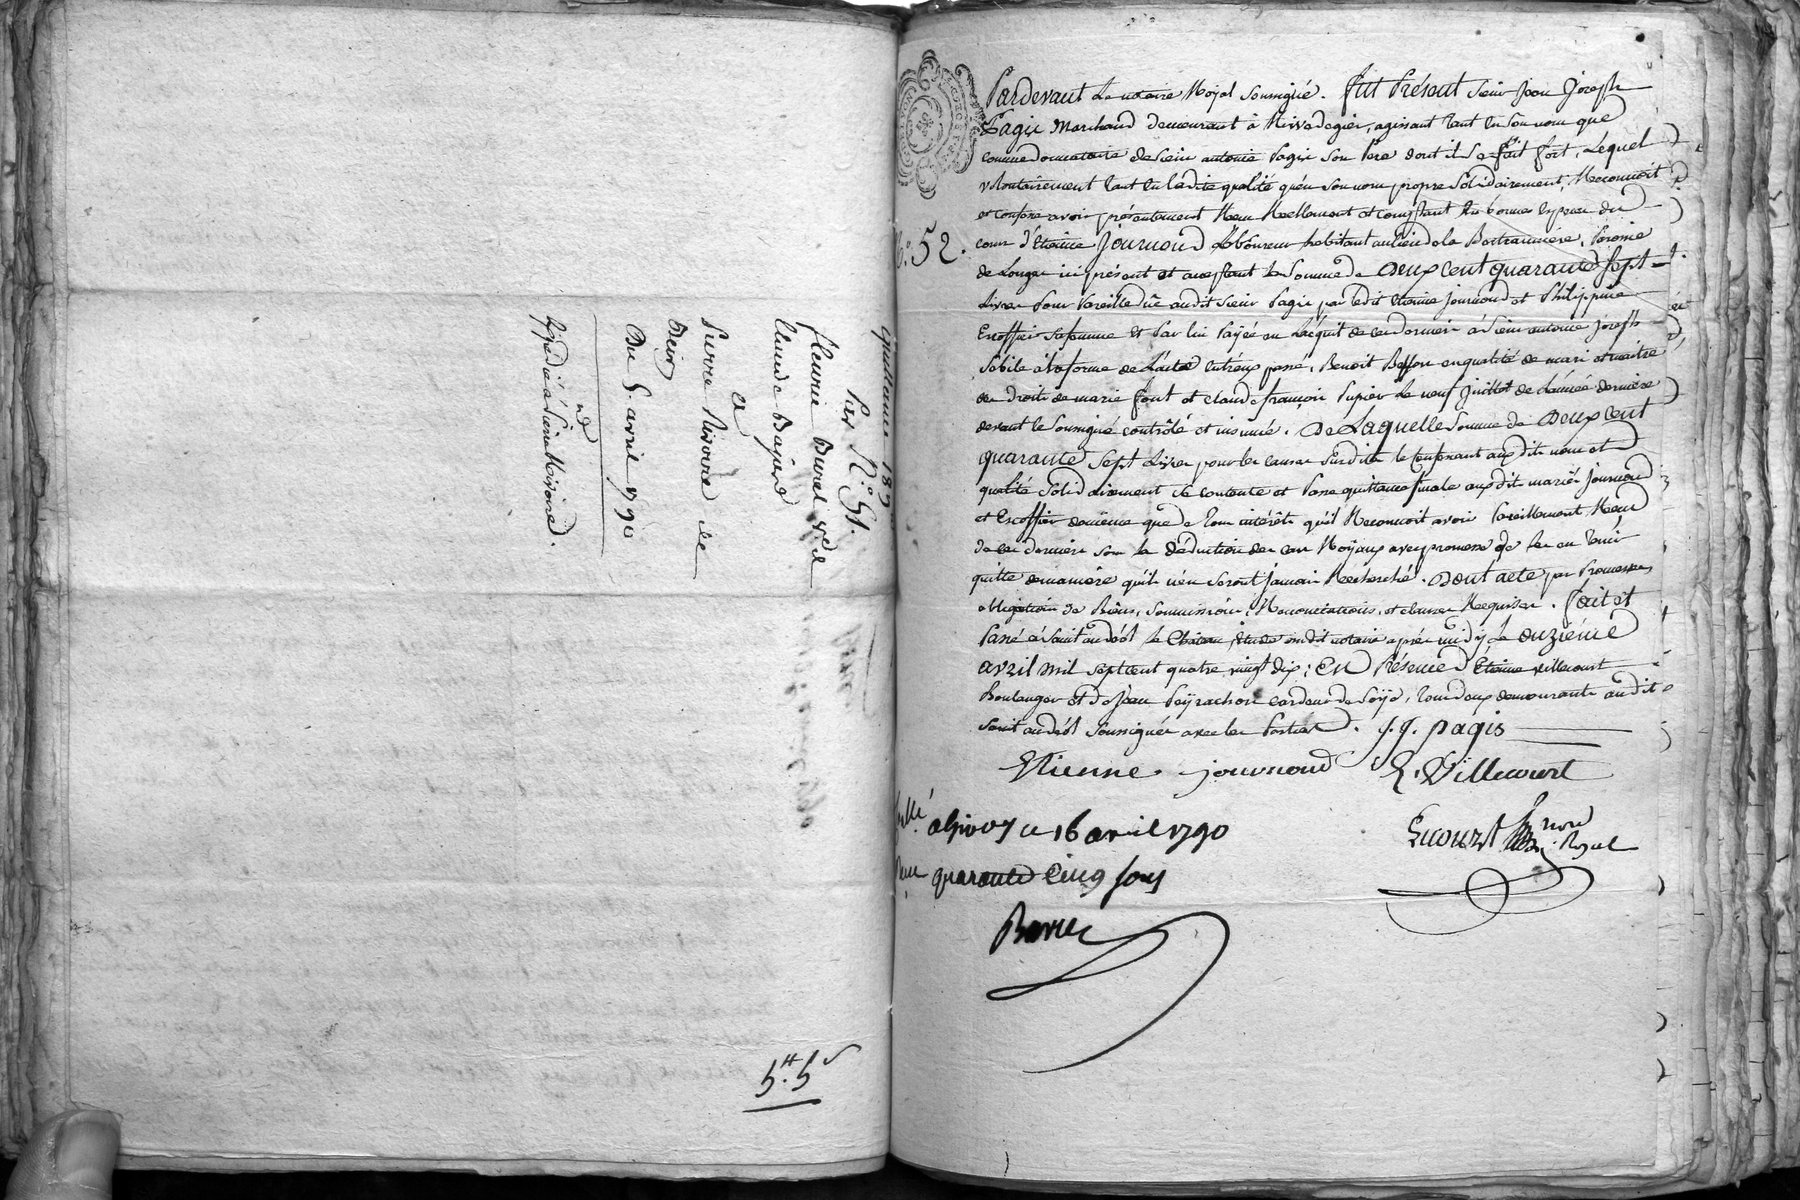 quittance 189
Par N.° 51.
fleurie Burel v.e de
Claude Bajard
a
Pierre Rivoire de
Du 5. avril 1790
Expédié à Sieur Rivoire.
5.# 5s
Pardevant Le notaire Royal Soussigné. fut Présent Sieur Jean Joseph
Pagis Marchand demeurant à Rivedegier, agissant tant en Son nom que
comme donnataire de Sieur antoine Pagis Son Pere dont il Se fait fort, Lequel
volontairement tant en Ladite qualité qu'en Son nom propre Solidairement, Reconnoit
et confesse avoir présentement Reçu Réellement et comptant En bonnes Especes du
cours d'Etienne Journoud Laboureur habitant au lieu de la Bertranniere, Paroisse
N.° 52.
de Longes ici présent et acceptant la Somme de Deux cent quarante Sept
Livres Pour Pareille düe audit Sieur Pagis par ledit Etienne Journoud et Philippine
Escoffier Sa femme et Par lui Payée en L'acquit de ces derniers à Sieur antoine Joseph
Sebile à la forme de L'acte entr'eux passé, Benoit Besson en qualité de mari et maitre
des droits de marie font et claude françois Pupier Le neuf Juillet de L'année derniere
devant le Soussigné contrôlé et insinué. De Laquelle Somme de Deux cent
quarante Sept Livres pour les causes Susdites le Confessant auxdits noms et
qualité Solidairement Se contente et Passe quittance finale auxdits mariés Journoud
et Escoffier de même que de Tous intérêts qu'il Reconnoit avoir Pareillement Reçu
de ces derniers Sous la déduction des cas Royaux avec promesse de les en Tenir
quitte de maniere qu'ils n'en Seront Jamais Recherché. Dont acte, par Promesses
obligation de Biens, Soumissions, Renonciations, et clauses Requises. fait et
Passé à Saint andéol le Chateau, Etude dudit notaire après midy Le onzieme
avril mil Sept cent quatre vingt dix; En Présence d'Etienne villecourt
Boulanger et de Jean Peyrachon cardeur de Soye, Tous deux demeurants audit
Saint andéol Soussignés avec les Parties. J. J. pagis
Etienne journoud E. Villecourt
not.re Royal
a Givors ce 16 avril 1790
Reçu quarante Cinq Sous